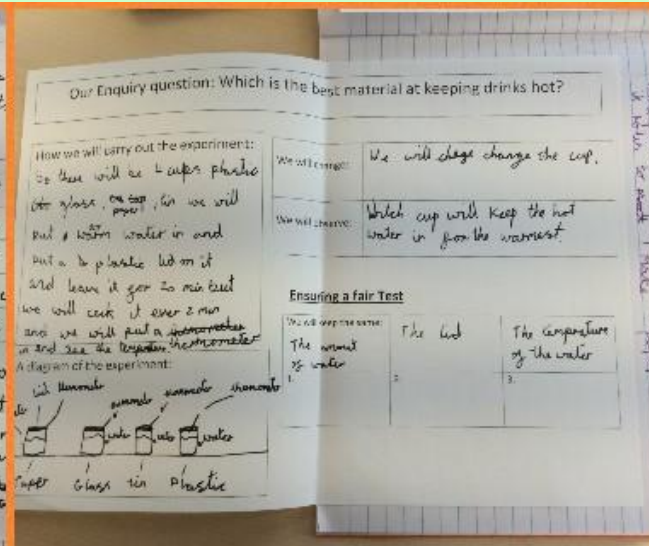 Our Enquiry question: Which is the best material at keeping drinks hot?
How we will carry out the experiment:
there will be 4 cups plastic
glass, paper, tin we will
put warm water in and
put a plastic lid on it
and leave it for 20 min but
we will ceck it ever 2 min
and we will put a thermometer
in and see the
A diagram of the experiment:
lid thermometer
water water water
Paper Glass tin Plastic
We will change:
We will chage change the cup.
We will observe:
Witch cup will keep the hot
water in for the warmest.
Ensuring a fair Test
We will keep the same:
The amount
of water
1.
The lid
2.
The temprature
of the water
3.